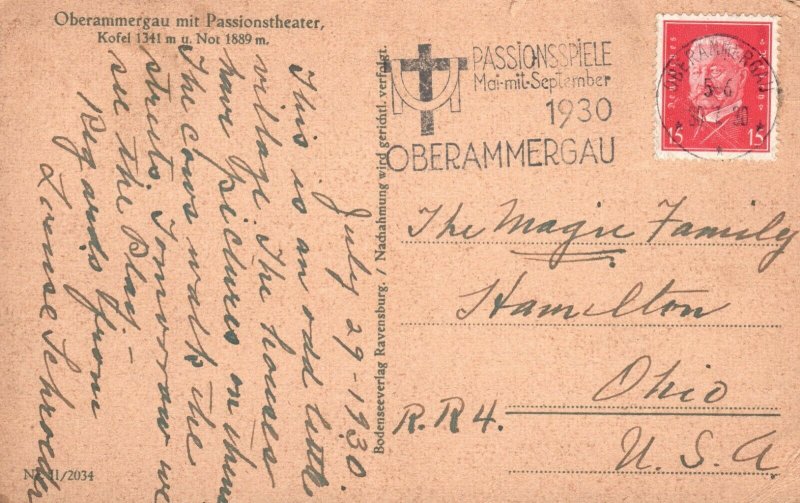 Oberammergau mit Passionstheater,
Kofel 1341 m u. Not 1889 m.
PASSIONSSPIELE
Mai-mit-September
1930
OBERAMMERGAU
OBERAMMERGAU
15 15
July 29-1930
This is an odd little
village The houses
have pictures on them
The cows walk the
streets Tomorrow we
see the Play -
Regards from
Louise Schroeder
Bodenseeverlag Ravensburg. / Nachahmung wird gerichtl. verfolgt.
The Magie Family
Hamilton
Ohio
R.R 4.
U.S.A
Nr. 11/2034